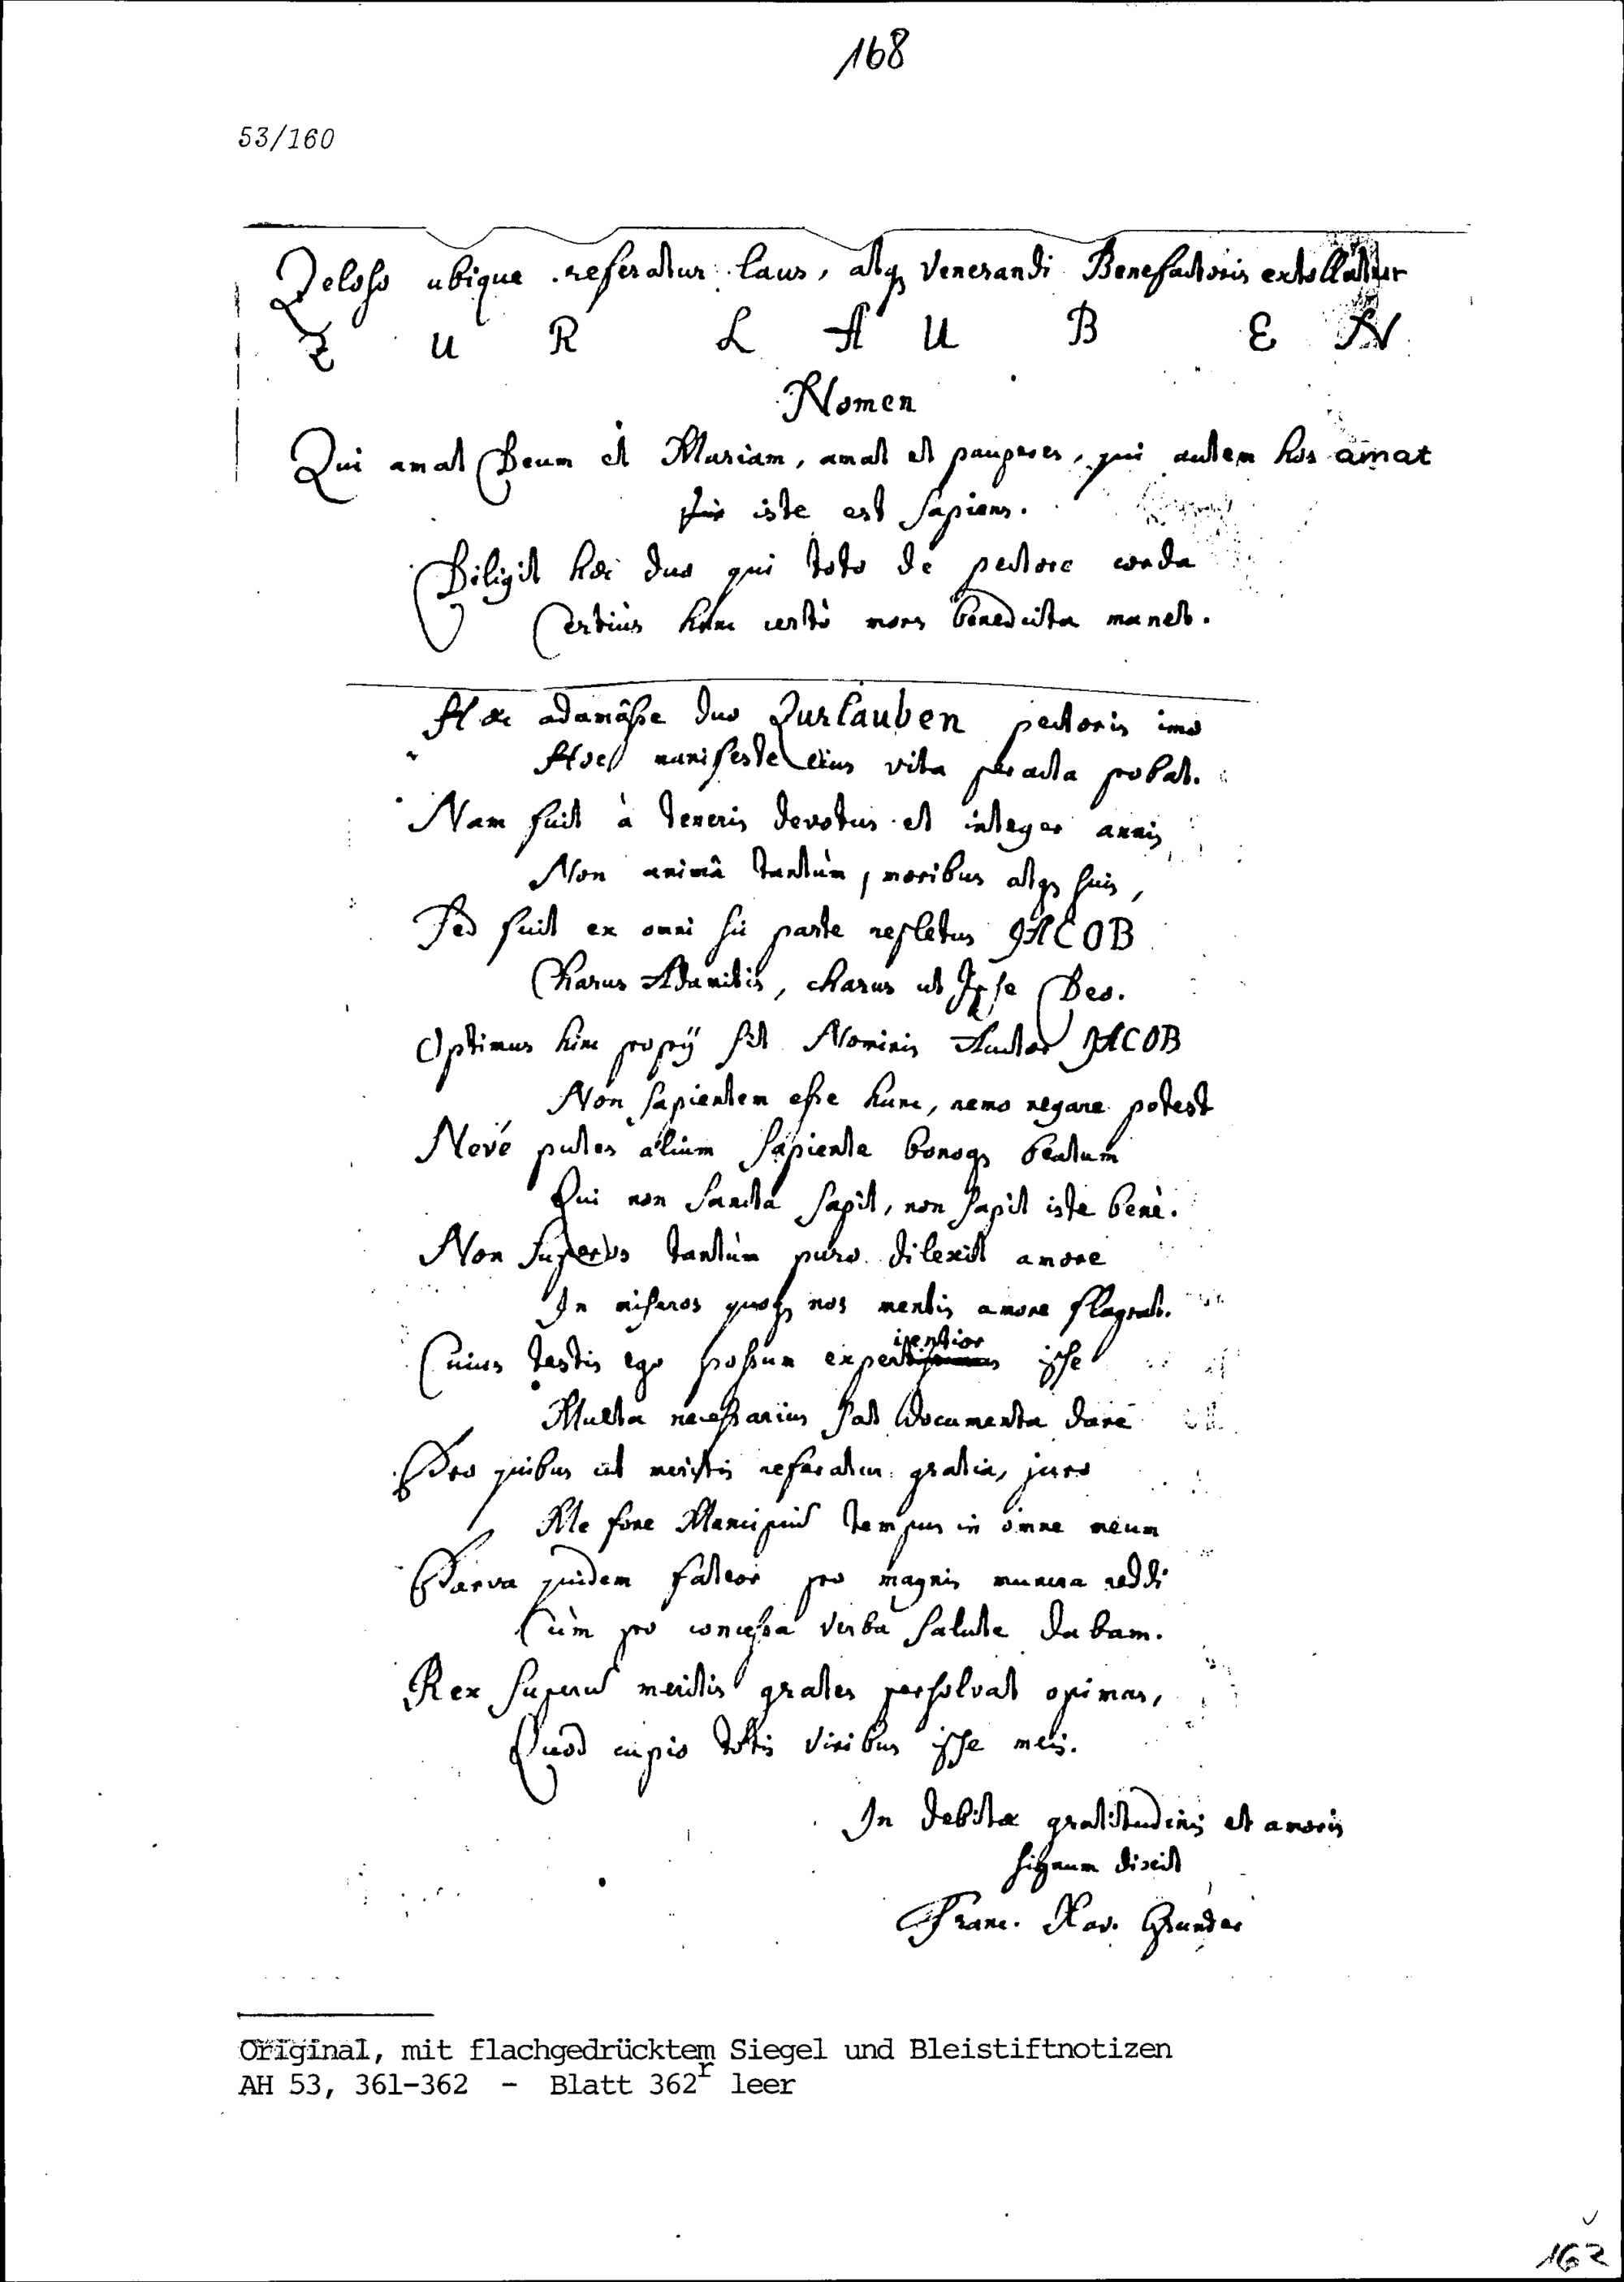 168
53/160
Zeloso ubique referatur laus, atq₃ Venerandi Benefactoris extollatur
Z U R L A U B E N
Nomen
Qui amat Deum et Mariam, amat et pauperes, qui autem hos amat
iste est sapiens.
Diligit hæc duo qui toto de pectore corda
Certiùs hunc certò mors benedicta manet.
Hæc adamâsse duo Zurlauben pectoris imo
Hoc manifeste eius vita peracta probat.
Nam fuit à teneris devotus et integer annis
Non animâ tantùm, moribus atq₃ suis,
Sed fuit ex omni sui parte repletus JACOB
Charus Adamitis, charus ut Ipse Deo.
Optimus hinc proprÿ fit Nominis Auctor JACOB
Non sapientem esse hunc, nemo negare potest
Nevé putes alium sapiente bonoq₃ beatum
Qui non sancta sapit, non sapit iste benè.
Non superos tantùm puro dilexit amore
In miseros quoq₃ nos mentis amore flagrat.
Cuius testis ego possum experientior ipse
Multa necessarius sat documenta dare
Pro quibus ut meritis referatur gratia, juro
Me fore Mancipiu tempus in omne meum
Parva quidem fateor pro magnis munera reddi
Cùm pro concessa verba salute dabam.
Rex superu meritis grates persolvat opimas,
Quod cupio totis viribus ipse meis.
In debitæ gratitudinis et amoris
signum dixit
Franc. Xav. Grunder
Original, mit flachgedrücktem Siegel und Bleistiftnotizen
AH 53, 361-362 - Blatt 362r leer
162